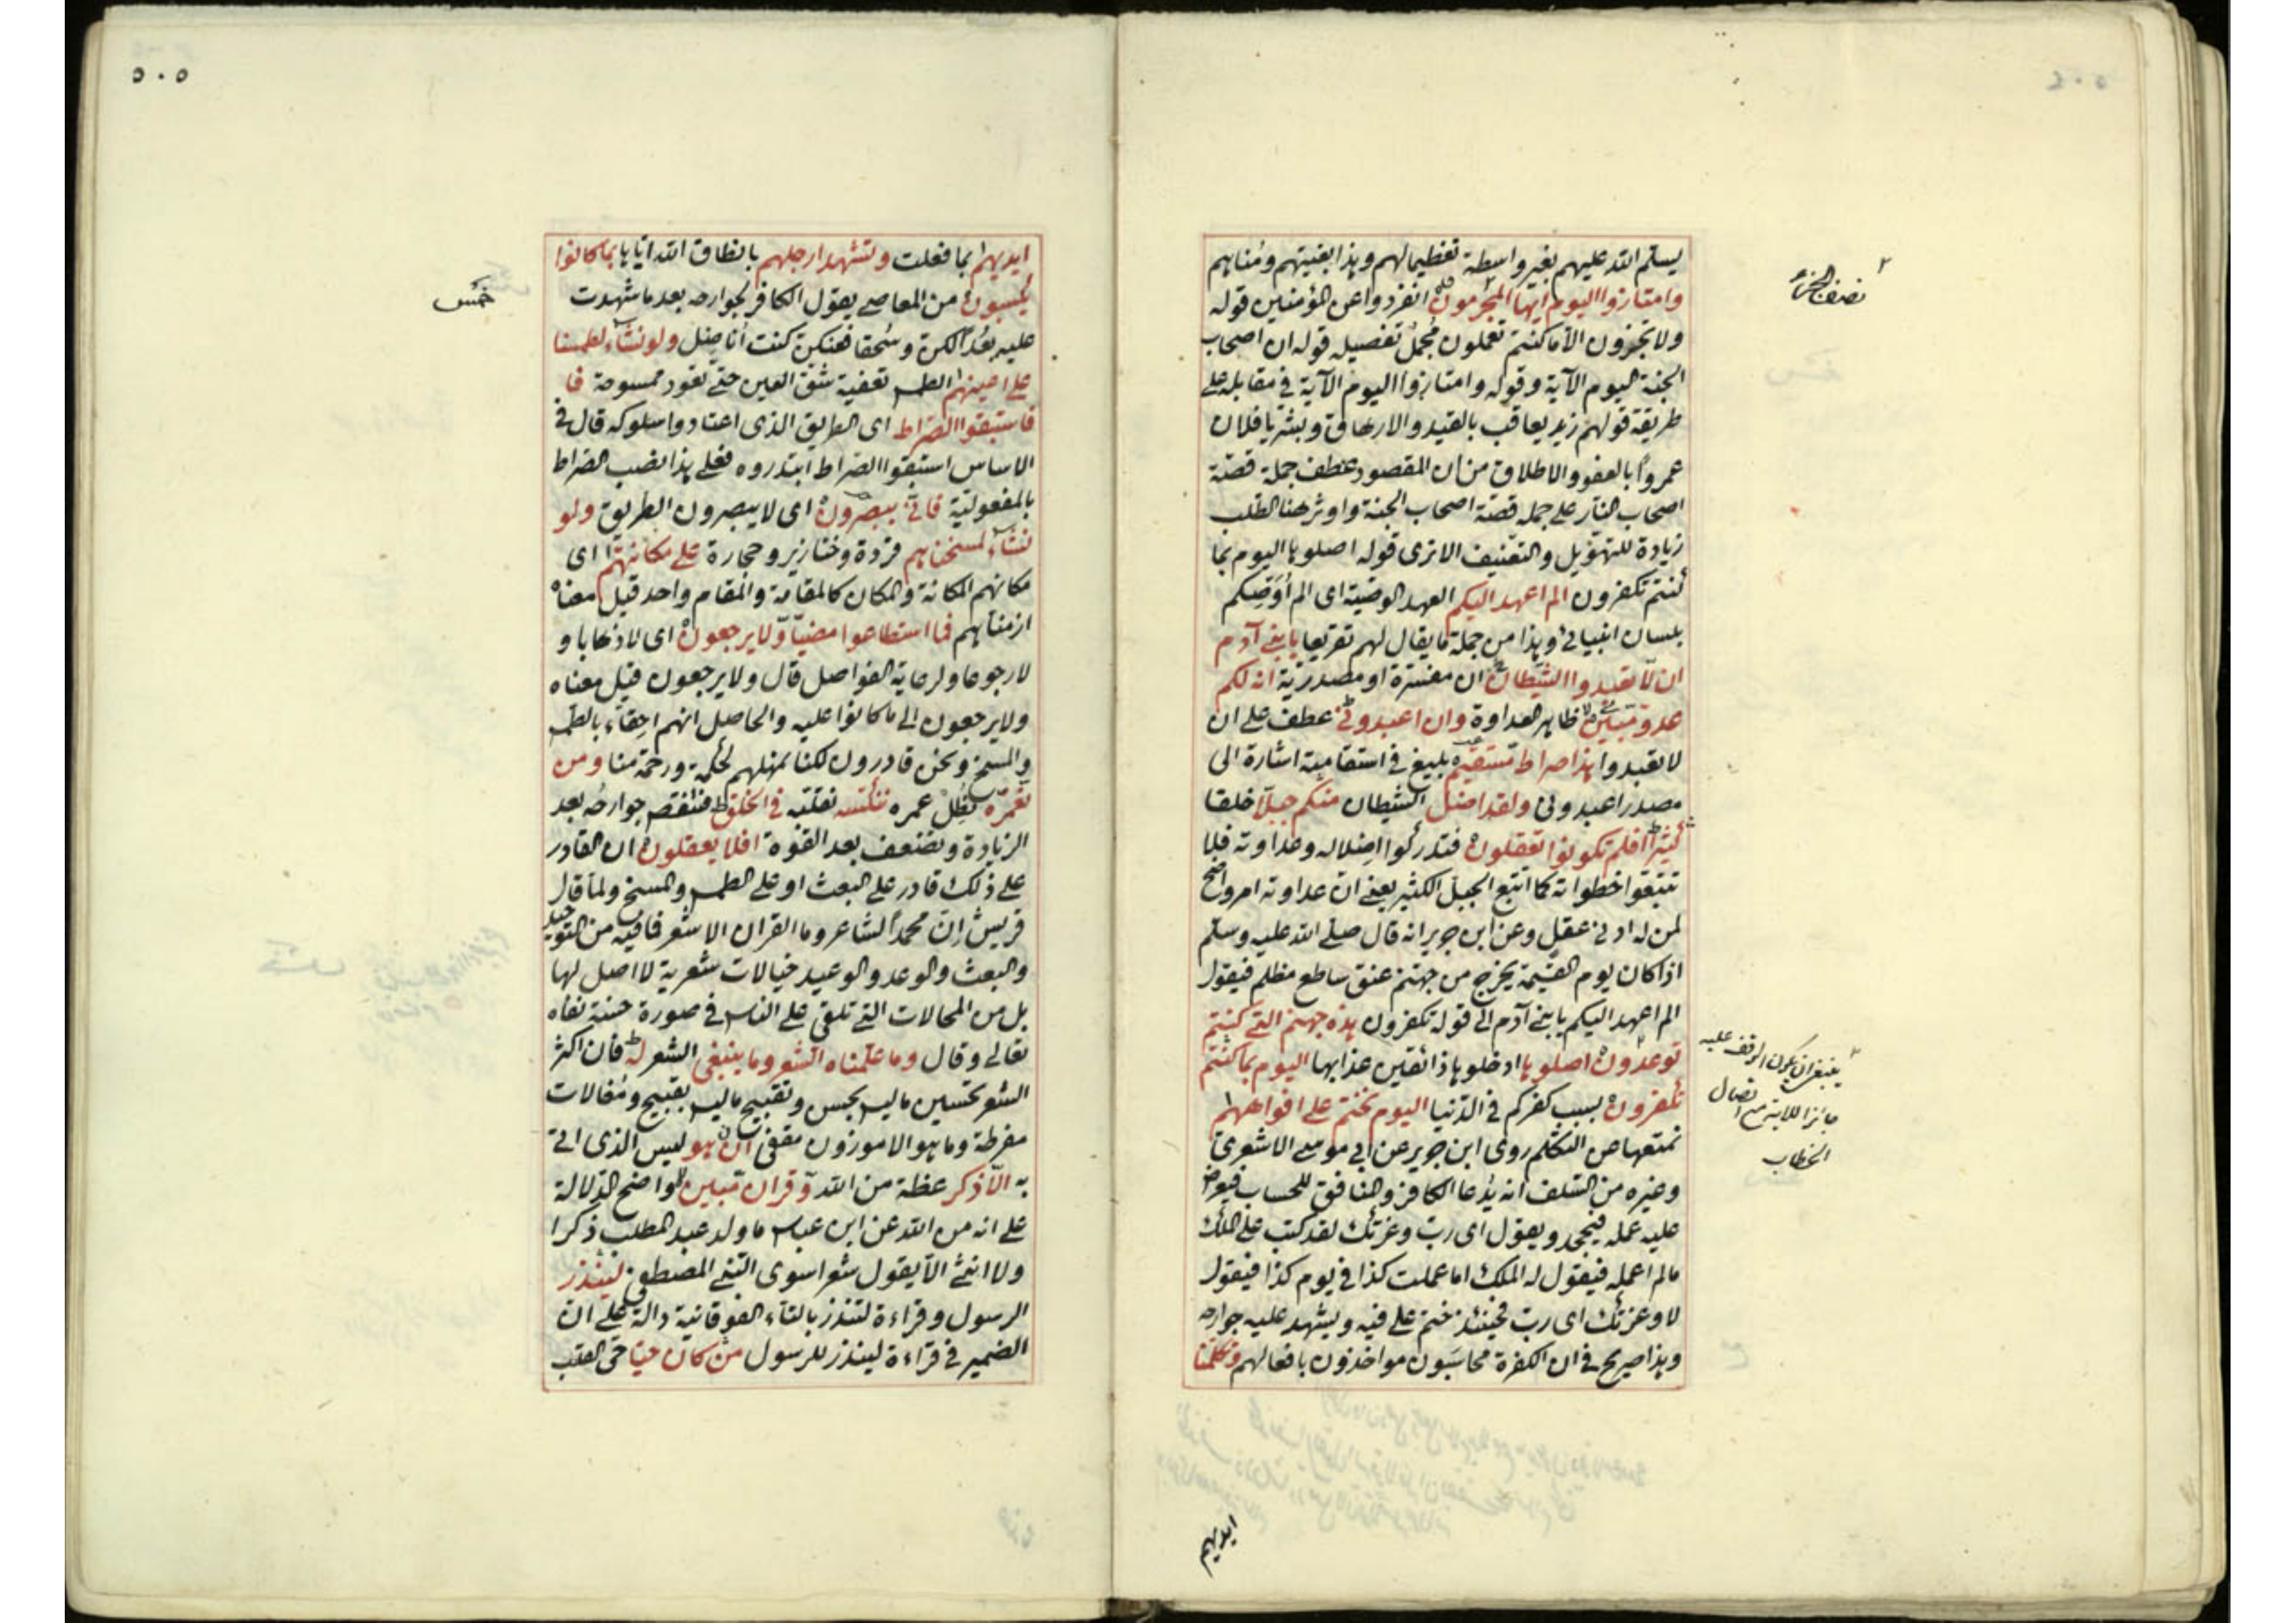 يسلم الله عليهم بغير واسطة تعظيما لهم وهذا بغيتهم ومناهم
وامتازوا اليوم ايها المجرمون انفردوا عن المؤمنين قوله
ولا تجزون الا ما كنتم تعملون مجمل تفصيله قوله ان اصحاب
الجنة اليوم الآية وقوله وامتازوا اليوم الآية في مقابله على
طريقة قولهم زيد يعاقب بالقيد والارهاق وبشر يا فلان
عمروا بالعفو والاطلاق من ان المقصود عطف جملة قصّة
اصحاب النار على جملة قصّة اصحاب الجنة واوثر هنا الطلب
زيادة للتهويل والتعنيف الا ترى قوله اصلوها اليوم بما
كنتم تكفرون الم اعهد اليكم العهد الوصية اى الم اُوَصِّكم
بلسان انبيائي وهذا من جملة ما يقال لهم تقريعا يا بني آدم
ان لا تعبدوا الشيطان ان مفسرة او مصدرية انه لكم
عدو مبين ظاهر العداوة وان اعبدوني عطف على ان
لا تعبدوا هذا صراط مستقيم بليغ في استقامته اشارة الى
مصدر اعبدوني ولقد اضل الشيطان منكم جبلّا خلقا
كثيرا افلم تكونوا تعقلون فتدركوا اضلاله وعداوته فلا
تتبعوا خطواته كما اتبع الجبل الكثير يعني ان عداوته امر واضح
لمن له ادنى عقل وعن ابن جرير انه قال صلى الله عليه وسلم
اذا كان يوم القيمة يخرج من جهنم عنق ساطع مظلم فيقول
الم اعهد اليكم يا بني آدم الى قوله تكفرون هذه جهنم التي كنتم
توعدون اصلوها ادخلوها ذائقين عذابها اليوم بما كنتم
تكفرون بسبب كفركم في الدّنيا اليوم نختم على افواههم
نمنعها من التكلم روى ابن جرير عن ابي موسى الاشعري
وغيره من السّلف انه يُدعا الكافر والمنافق للحساب فيعرض
عليه عمله فيجحد ويقول اى رب وعزتك لقد كتب على الملك
مالم اعمله فيقول له الملك اما عملت كذا في يوم كذا فيقول
لا وعزتك اى رب فحينئذ ختم على فيه ويشهد عليه جوارحه
وهذا صريح في ان الكفرة محاسَبون مواخذون بافعالهم وتكلمنا
نصف الحزب
ينبغي ان يكون الوقف عليه
جائزا للابتداء مع اتصال
الخطاب
ايديهم
٥٠٥
ايديهم بما فعلت وتشهد ارجلهم بانطاق الله اياها بما كانوا
يكسبون من المعاصي يقول الكافر لجوارحه بعد ما شهدت
عليه بُعدًا لكن وسُحقا فعنكن كنت أناضل ولو نشاء لطمسنا
على اعينهم الطمس تعفية شق العين حتى تعود ممسوحة فا
فاستبقوا الصراط اى الطريق الذى اعتادوا سلوكه قال في
الاساس استبقوا الصراط ابتدروه فعلى هذا نصب الصراط
بالمفعولية فانّى يبصرون اى لا يبصرون الطريق ولو
نشاء لمسخناهم قردة وخنازير وحجارة على مكانتهم اى
مكانهم المكانة والمكان كالمقامة والمقام واحد قيل معناه
ازمناهم فما استطاعوا مضيّا ولا يرجعون اى لا ذهابا و
لا رجوعا ولرعاية الفواصل قال ولا يرجعون قيل معناه
ولا يرجعون الى ما كانوا عليه والحاصل انهم احقاء بالطمس
والمسخ ونحن قادرون لكنا نمهلهم لحكمة ورحمة منا ومن
نعمّره نُطِل عمره ننكّسه نقلبه في الخلق فتنقص جوارحُه بعد
الزيادة وتضعف بعد القوة افلا يعقلون ان القادر
على ذلك قادر على البعث او على الطمس والمسخ ولما قال
قريش ان محمداً لشاعر وما القران الا شعر فما فيه من التوحيد
والبعث والوعد والوعيد خيالات شعرية لا اصل لها
بل من المحالات التي تلقى على الناس في صورة حسنة نفاه
تعالى وقال وما علّمناه الشعر وما ينبغي الشعر له فان اكثر
الشعر تحسين ما ليس بحسن وتقبيح ما ليس بقبيح ومُغالات
مفرطة وما هو الا موزون مقفى ان هو ليس الذى اتى
به الّا ذكر عظة من الله وقران مبين لواضح الدلالة
على انه من الله عن ابن عباس ما ولد عبد المطلب ذكرا
ولا انثى الا يقول شعرا سوى النبي المصطفى لينذر
الرسول وقراءة لتنذر بالتاء الفوقانية دالة على ان
الضمير في قراءة لينذر للرسول من كان حيّا حى القلب
خمس